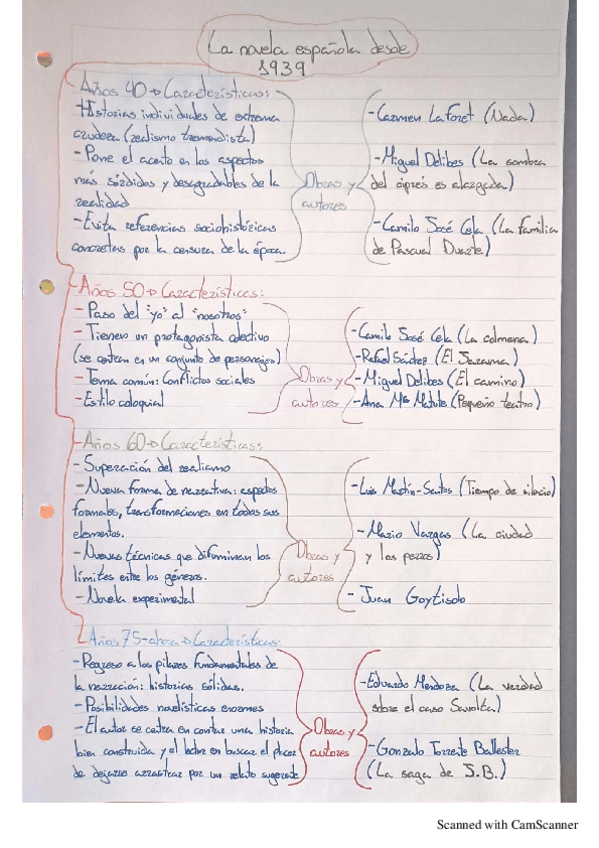 La novela española desde
1939
Años 40 → Características:
Historias individuales de extrema
crudeza (realismo tremendista)
- Pone el acento en los aspectos
más sórdidos y desagradables de la
realidad
- Evita referencias sociohistóricas
concretas por la censura de la época.
Obras y
autores
- Carmen Laforet (Nada)
- Miguel Delibes (La sombra
del ciprés es alargada)
- Camilo José Cela (La familia
de Pascual Duarte)
- Años 50 → Características:
- Paso del "yo" al "nosotros"
- Tienen un protagonista colectivo
(se centran en un conjunto de personajes)
- Tema común: Conflictos sociales
- Estilo coloquial
Obras y
autores
- Camilo José Cela (La colmena)
- Rafael Sánchez (El Jarama)
- Miguel Delibes (El camino)
- Ana Mª Matute (Pequeño teatro)
- Años 60 → Características:
- Superación del realismo
- Nueva forma de narrativa: aspectos
formales, transformaciones en todos sus
elementos.
- Nuevas técnicas que difuminan los
límites entre los géneros.
- Novela experimental
Obras y
autores
- Luis Martín-Santos (Tiempo de silencio)
- Mario Vargas (La ciudad
y los perros)
- Juan Goytisolo
Años 75-ahora → Características:
- Regreso a los pilares fundamentales de
la narración: historias sólidas.
- Posibilidades novelísticas enormes
- El autor se centra en contar una historia
bien construida y el lector en buscar el placer
de dejarse arrastrar por un relato sugerente
Obras y
autores
- Eduardo Mendoza (La verdad
sobre el caso Savolta)
- Gonzalo Torrente Ballester
(La saga de J.B.)
Scanned with CamScanner